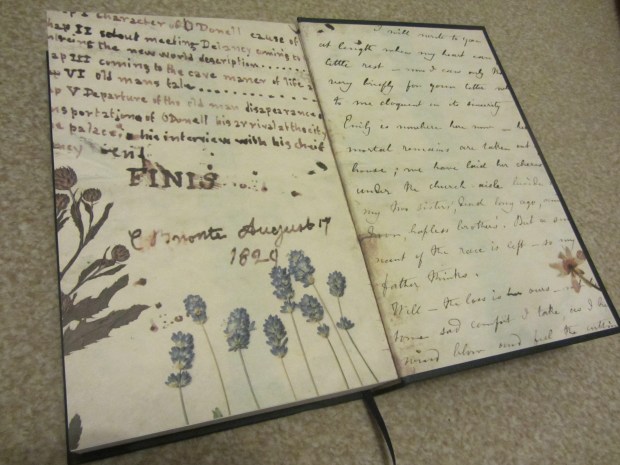 a character of ODonell cause of
hap II sotout meeting Delancy coming to
the new world description..........
ap III coming to the cave maner of life a
ap VI old mans tale..............
ap V Departure of the old man disapearance o
nsportations of ODonell his arrival at the city
e palace his interview with his cheif
end
FINIS
C Bronte August 17
1829
I will write to you
at length when my heart can
little rest – now I can only th
very briefly for your letter wh
to me eloquent in its sincerity
Emily is nowhere here now – her
mortal remains are taken out
house; we have laid her cheris
under the church-aisle beside
my two sisters, dead long ago, and
hapless brother's. But a s
nant of the race is left – so my
father thinks.
Well – the loss is ours –
some sad comfort I take, as I h
wind blow and feel the